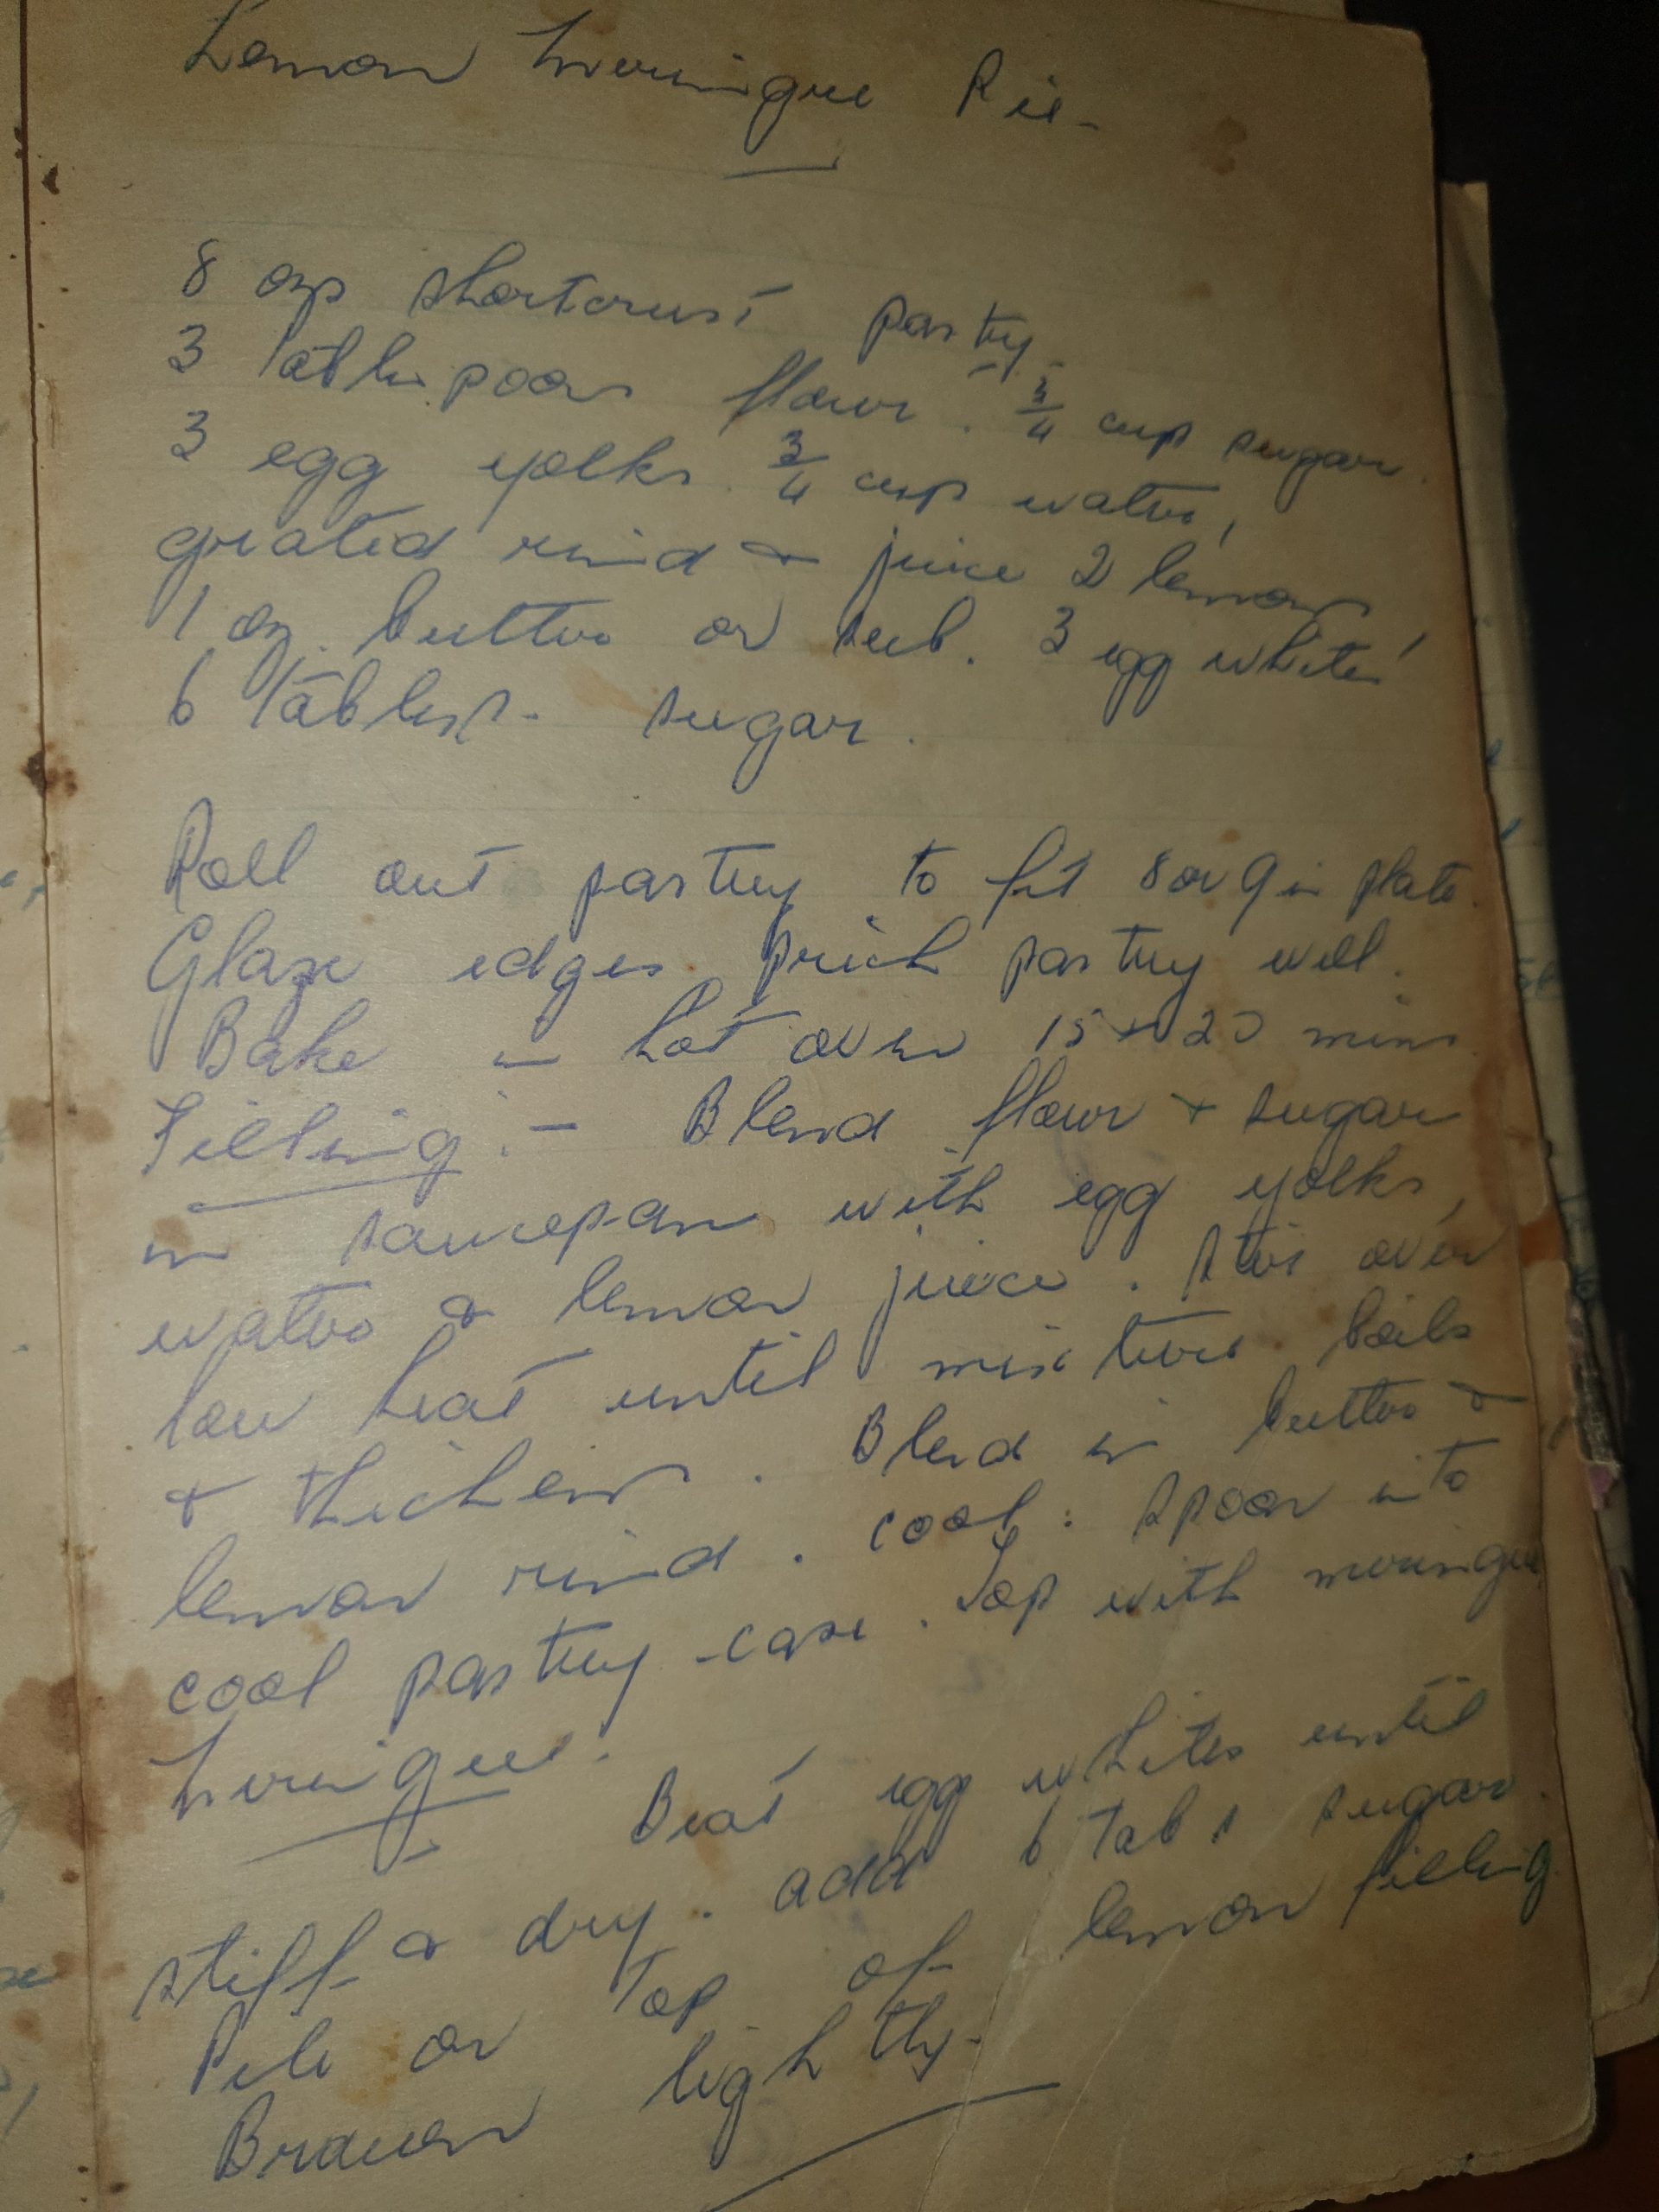 Lemon Meringue Pie -
8 ozs shortcrust pastry.
3 tablespoons flour. 3/4 cup sugar.
3 egg yolks. 3/4 cup water,
grated rind & juice 2 lemons,
1 oz. butter or sub. 3 egg whites
6 tablesp. sugar.
Roll out pastry to fit 8 or 9 in plate.
Glaze edges. prick pastry well.
Bake in hot oven 15 to 20 mins
Filling :- Blend flour + sugar
in saucepan with egg yolks,
water & lemon juice. Stir over
low heat until mixture boils
& thickens. Blend in butter &
lemon rind. cool: spoon into
cool pastry-case. Top with meringue
Meringue.
Beat egg whites until
stiff & dry. add 6 Tabs sugar.
Pile on Top of lemon filling.
Brown lightly.